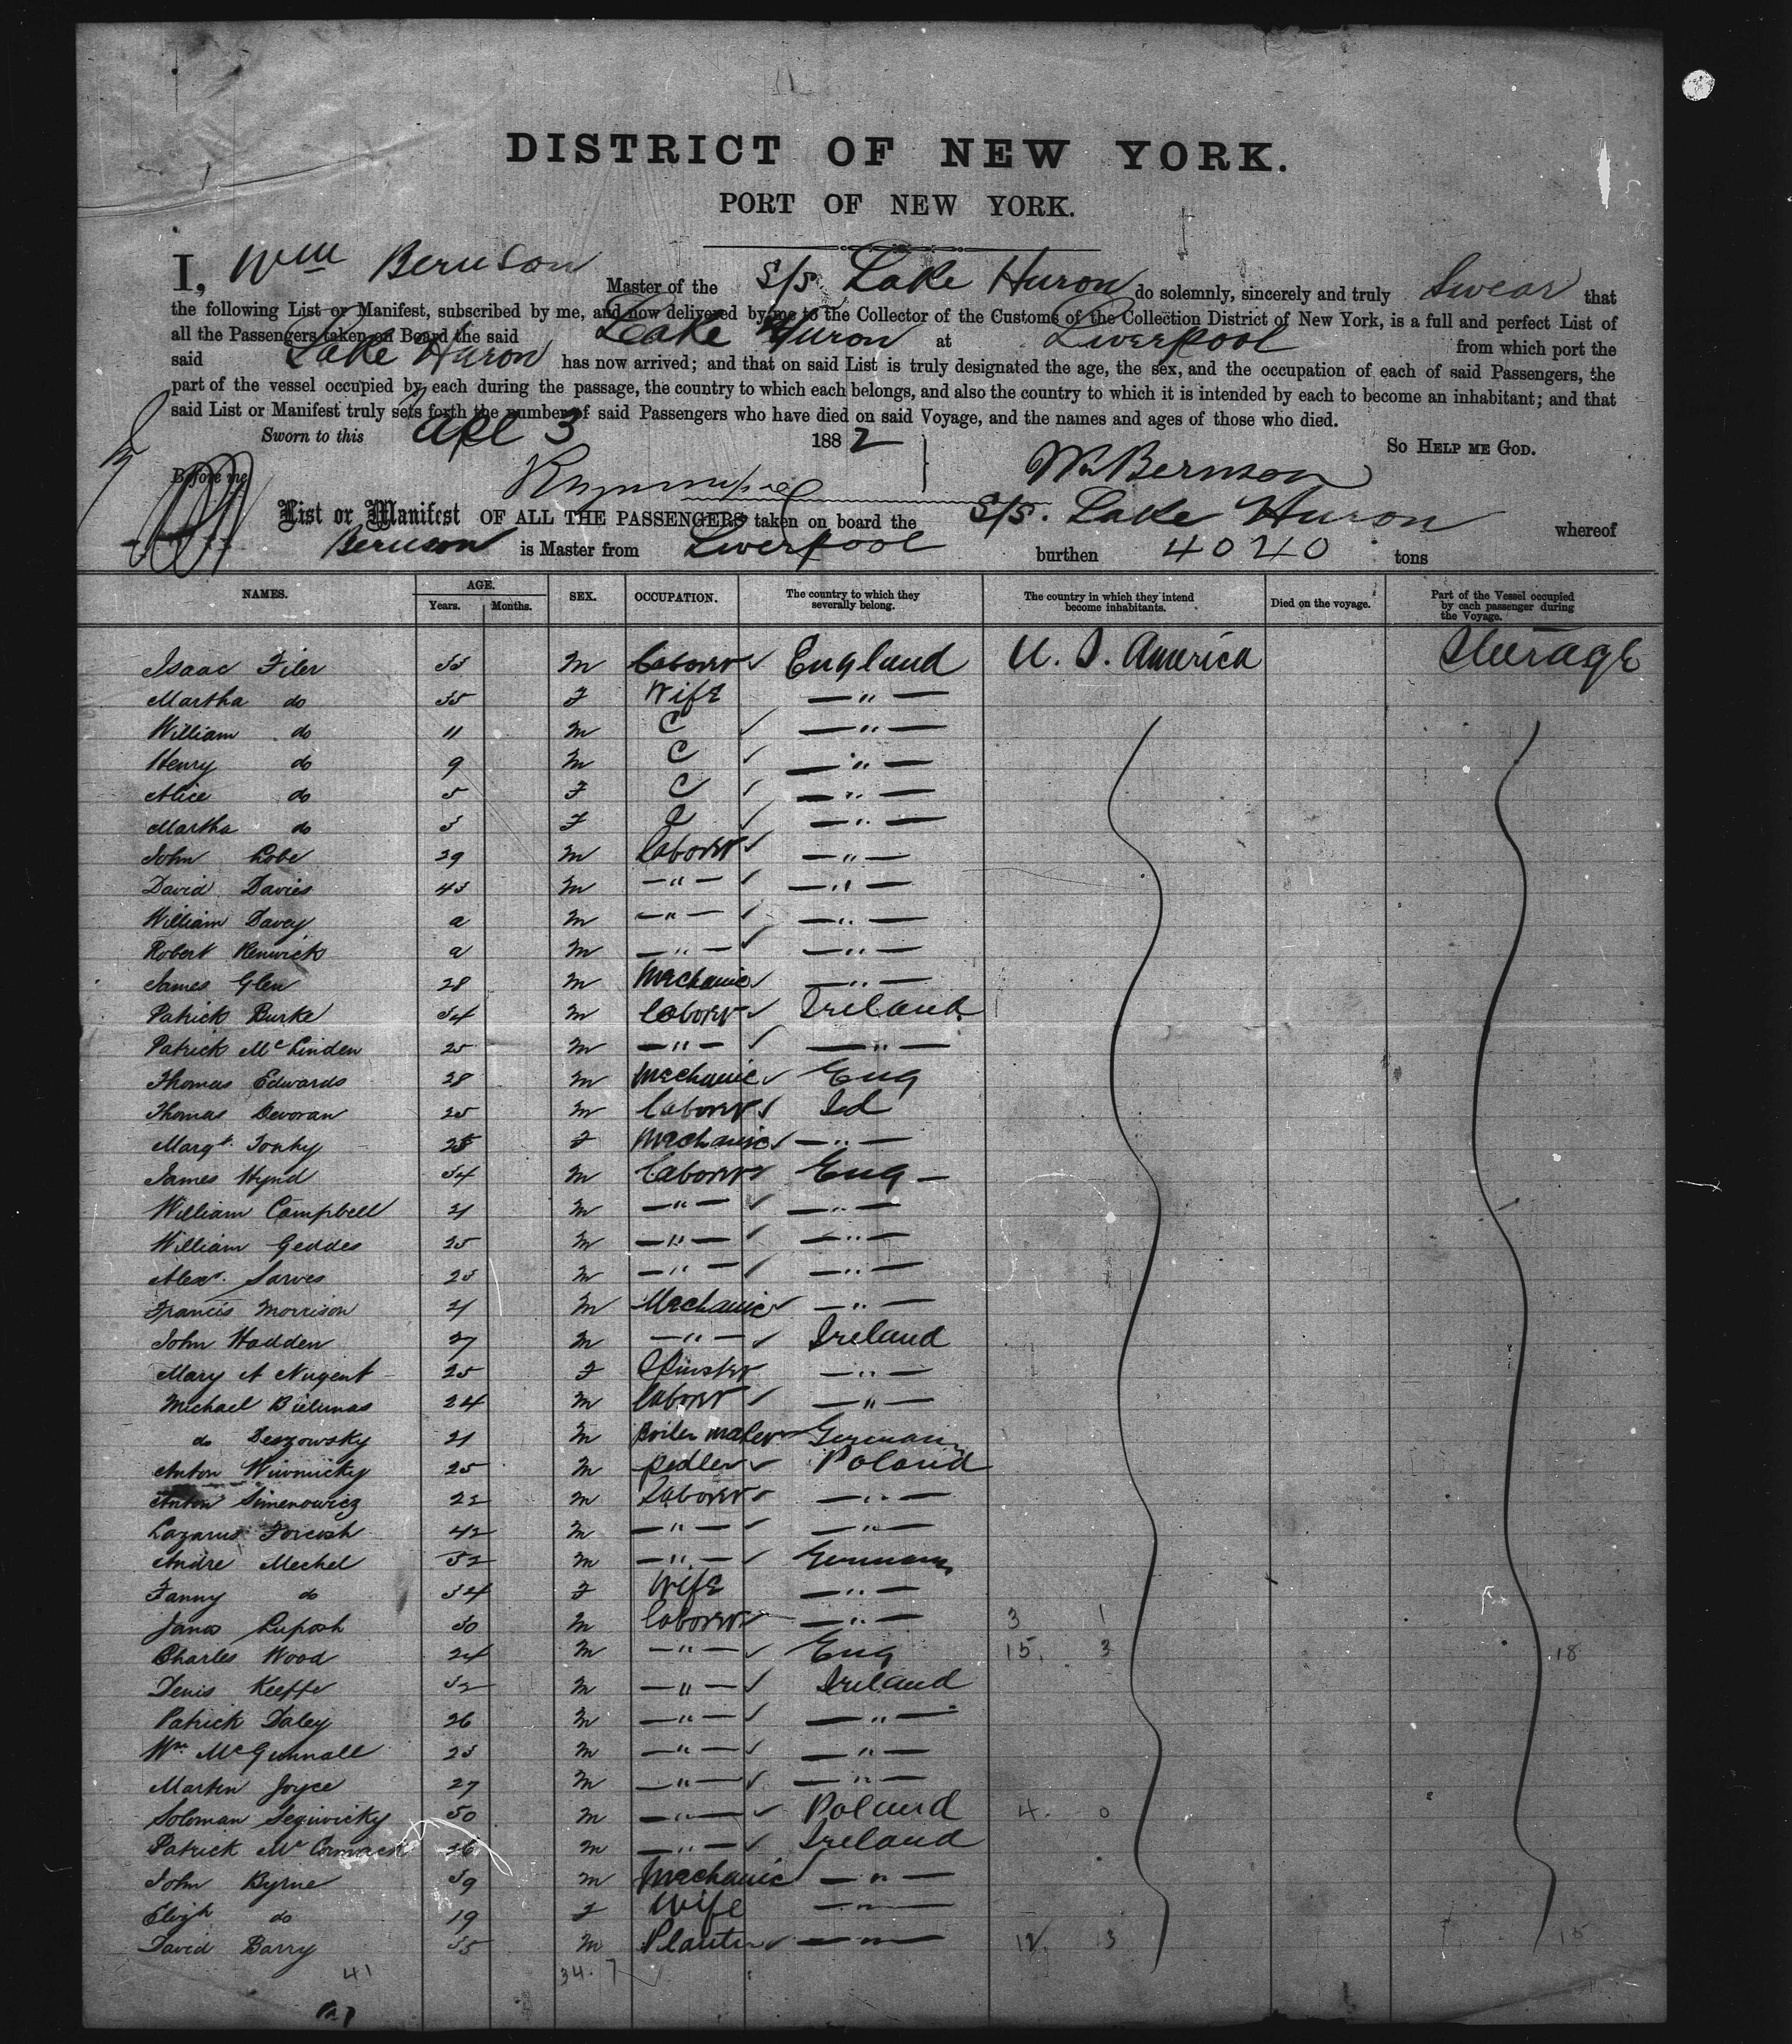 DISTRICT OF NEW YORK.
PORT OF NEW YORK.
I, Wm Bernson Master of the S/S. Lake Huron do solemnly, sincerely and truly Swear that
the following List or Manifest, subscribed by me, and now delivered by me to the Collector of the Customs of the Collection District of New York, is a full and perfect List of
all the Passengers taken on Board the said Lake Huron at Liverpool from which port the
said Lake Huron has now arrived; and that on said List is truly designated the age, the sex, and the occupation of each of said Passengers, the
part of the vessel occupied by each during the passage, the country to which each belongs, and also the country to which it is intended by each to become an inhabitant; and that
said List or Manifest truly sets forth the number of said Passengers who have died on said Voyage, and the names and ages of those who died.
Sworn to this Apl 3 1882 So HELP ME GOD.
Before me Wm Bernson
List or Manifest OF ALL THE PASSENGERS taken on board the S/S. Lake Huron whereof
Bernson is Master from Liverpool burthen 4040 tons
NAMES. AGE. Years. Months. SEX. OCCUPATION. The country to which they severally belong. The country in which they intend become inhabitants. Died on the voyage. Part of the Vessel occupied by each passenger during the Voyage.
Isaac Filer 35 M Laborer England U. S. America Steerage
Martha do 35 F Wife — " —
William do 11 M C — " —
Henry do 9 M C — " —
Alice do 5 F C — " —
Martha do 3 F C — " —
John Lobe 29 M Laborer — " —
David Davies 43 M — " — — " —
William Davey a M — " — — " —
Robert Renwick a M — " — — " —
James Glen 28 M Mechanic — " —
Patrick Burke 34 M Laborer Ireland
Patrick McLinden 25 M — " — — " —
Thomas Edwards 28 M Mechanic Eng
Thomas Devoran 25 M Laborer Ird
Margt. 25 F Mechanic — " —
James Hynd 34 M Laborer Eng —
William Campbell 21 M — " — — " —
William Geddes 25 M — " — — " —
Alexr. Sarves 23 M — " — — " —
Francis Morrison 21 M Mechanic — " —
John Hadden 27 M — " — Ireland
Mary A Nugent 25 F Spinster — " —
Michael Bielunas 24 M Labrer — " —
do Deszowsky 21 M Boiler maker Germany
Anton 25 M Pedler Poland
Anton Simenowicz 22 M Laborer — " —
Lazarus 42 M — " — — " —
Andre Mechel 32 M — " — Germany
Fanny do 34 F Wife — " —
Janos Luposh 30 M Laborer — " — 3 1
Charles Wood 24 M — " — Eng 15. 3 18
Denis Keeffe 32 M — " — Ireland
Patrick Daley 26 M — " — — " —
Wm. McGunnall 23 M — " — — " —
Martin Joyce 27 M — " — — " —
Soloman Segiwicky 50 M — " — Poland 4. 0
Patrick McCormack 26 M — " — Ireland
John Byrne 39 M Mechanic — " —
Elizh do 19 F Wife — " —
David Barry 35 M Planter — " — 12. 3 15
41 34. 7